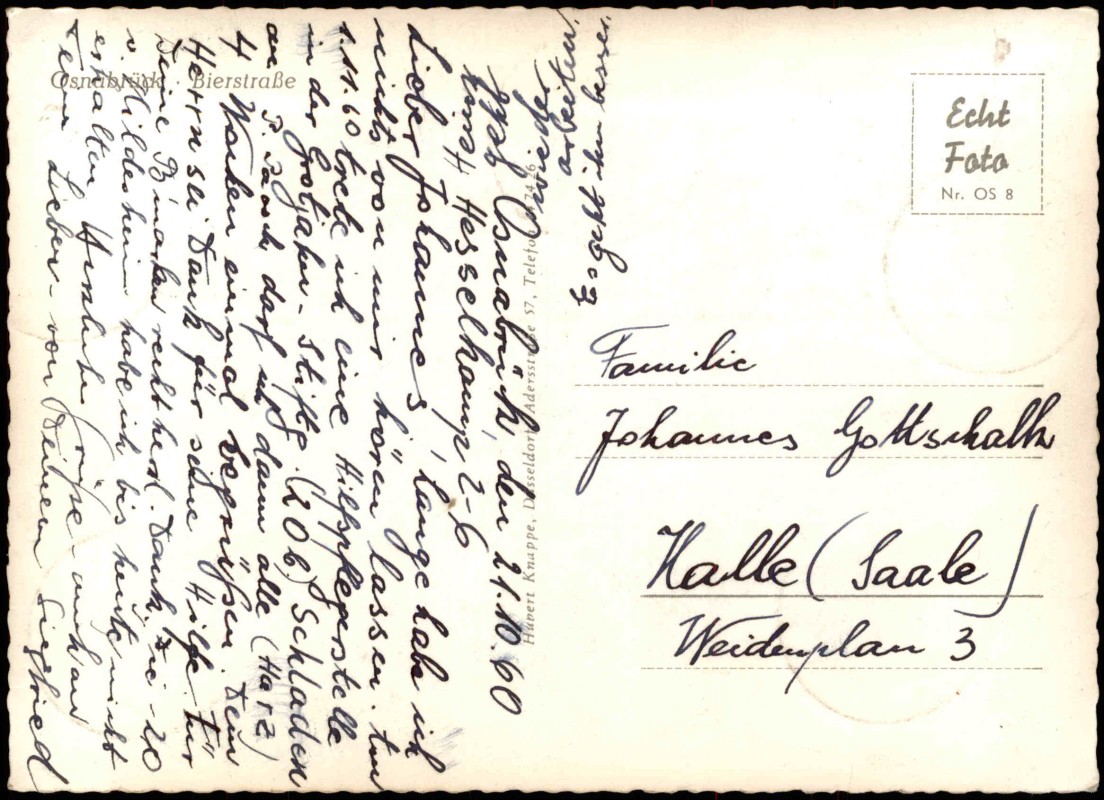 Osnabrück · Bierstraße
Echt
Foto
Nr. OS 8
Hubert Knappe, Düsseldorf, Adersstraße 57, Telefon
Familie
Johannes Gottschalk
Halle (Saale)
Weidenplan 3
Osnabrück, den 21.10.60
Hesselkamp 2-6
Lieber Johannes, lange habe ich
nichts von mir hören lassen. Am
1.11.60 trete ich eine Hilfspflegerstelle
in der Grotjahn-Stiftg. (20b) Schladen
an. P. darf uns dann alle (Harz)
4 Wochen einmal begrüßen. Dem
Herrn sei Dank für seine Hilfe. Für
Deine recht herzl. Dank.
v. Hildesheim habe ich bis heute nicht
erhalten. Herzliche Grüße
Deine Lieben - von Deinem Siegfried
wieder
arbeiten.
Es geht ihm besser.